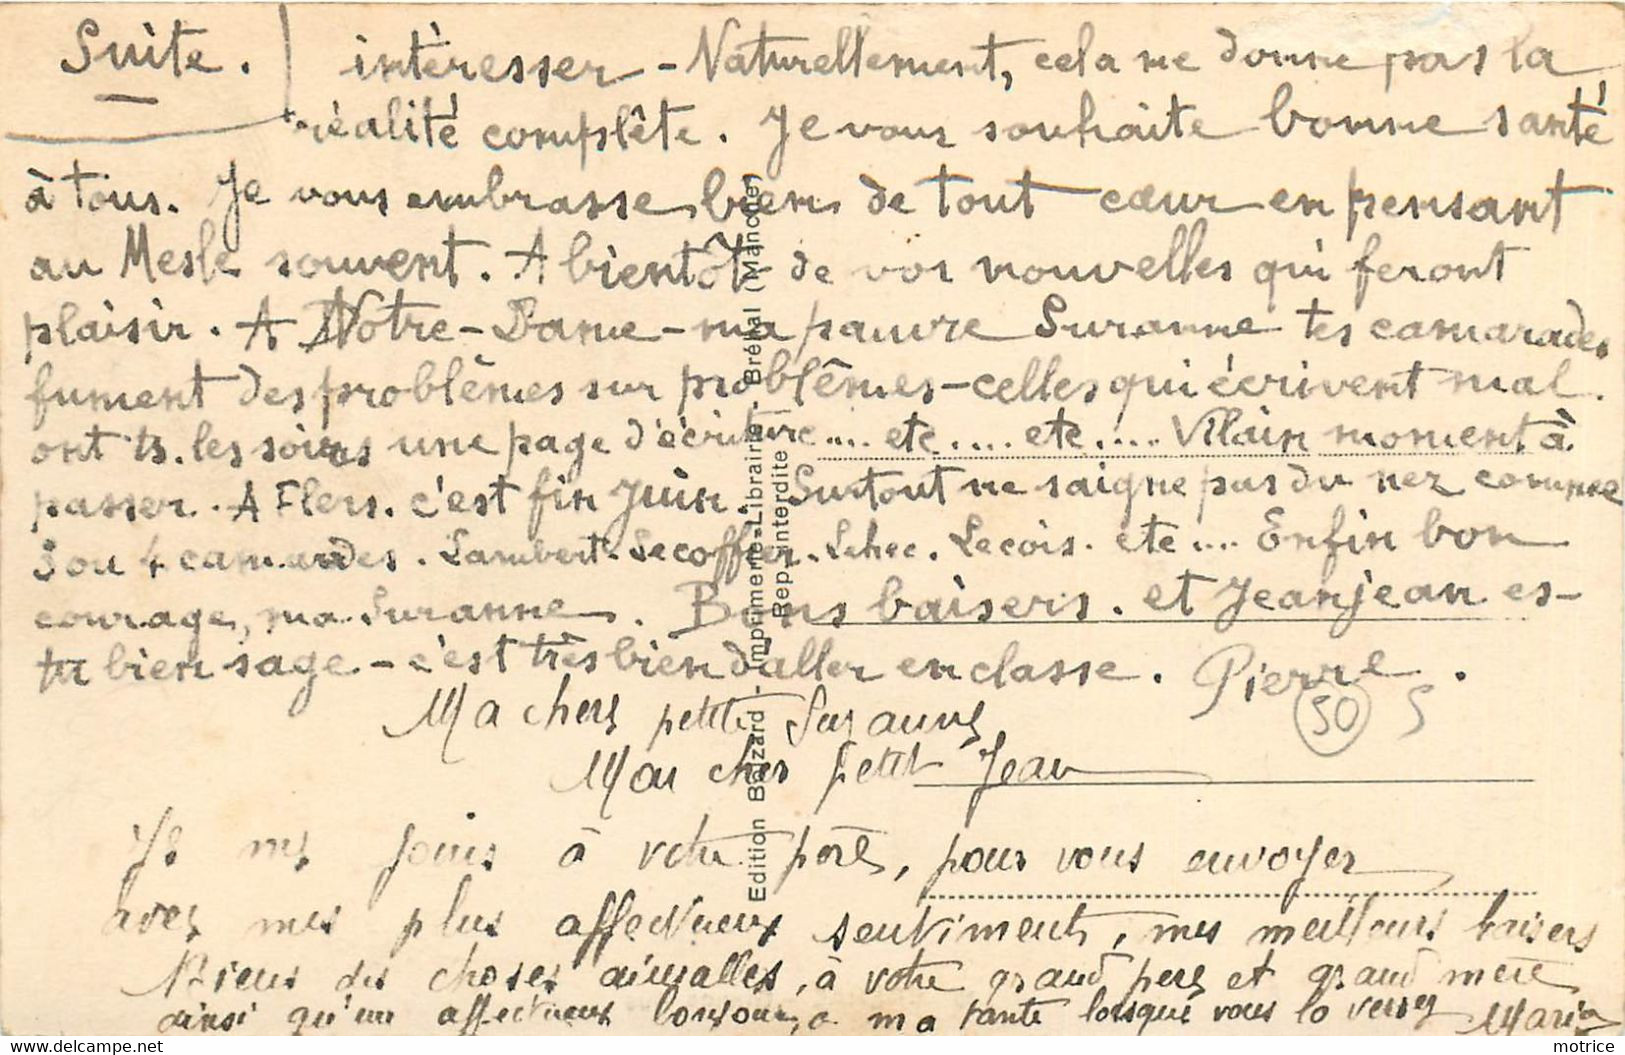 Suite.
intéresser - Naturellement, cela ne donne pas la
réalité complète. Je vous souhaite bonne santé
à tous. Je vous embrasse bien de tout cœur en pensant
au Mesle souvent. A bientôt de vos nouvelles qui feront
plaisir. A Notre-Dame - ma pauvre Suzanne tes camarades
fument des problèmes sur problèmes - celles qui écrivent mal
ont ts. les soirs une page d'écriture.... etc.... etc.... Vilain moment à
passer. A Flers. c'est fin Juin. Surtout ne saigne pas du nez comme
3 ou 4 camarades. Lambert. Lecoffrer. Lehec. Lecois. etc... Enfin bon
courage, ma Suzanne. Bons baisers. et Jeanjean es-
tu bien sage - c'est très bien d'aller en classe. Pierre.
50 5
Ma chere petite Suzanne
Mon cher petit Jean
Je me joins à votre père, pour vous envoyer
avec mes plus affectueux sentiments, mes meilleurs baisers
des choses aimables, à votre grand pere et grand mere
ainsi qu'un affectueux bonjour, a ma tante lorsque vous la verrez Maria
Edition Bazzard - Imprimerie-Librairie - Bréhal (Manche)
Rep. interdite
motrice